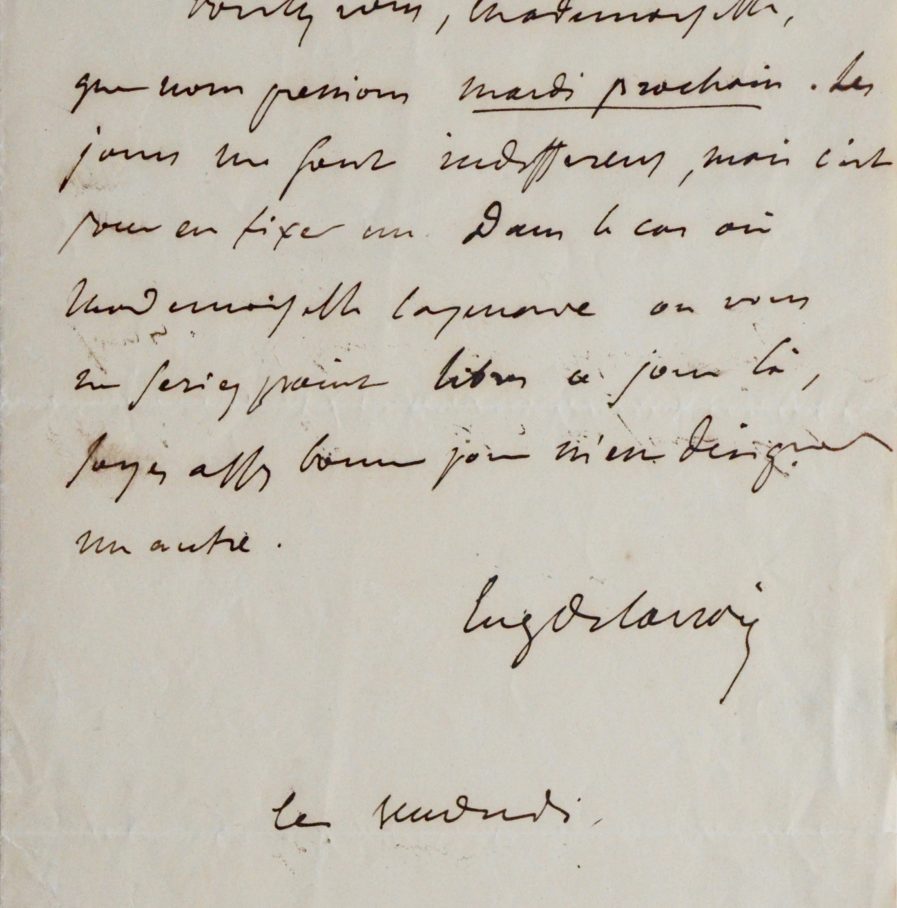 voulez vous, Mademoiselle,
que nous prenions mardi prochain. Les
jours me sont indifferens, mais c'est
pour en fixer un. Dans le cas où
Mademoiselle ou vous
ne seriez point libres ce jour là,
soyez assez bonne pour m'en designer
un autre.
Eug Delacroix
le vendredi.